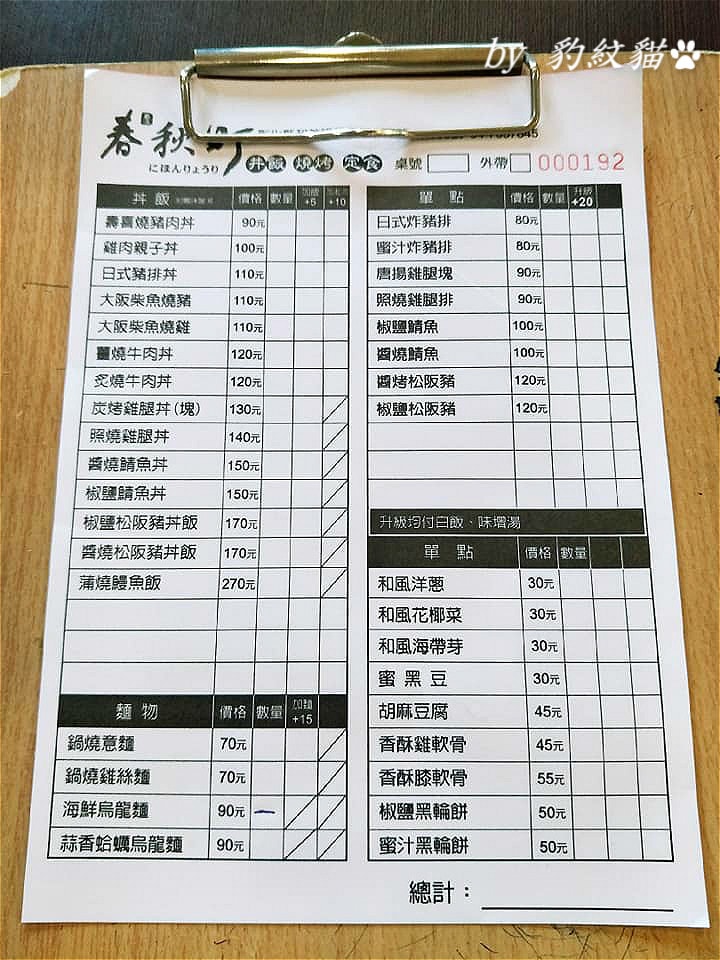 by 豹紋貓
春秋町
にほんりょうり
丼飯 燒烤 定食 桌號 外帶 000192
丼飯 價格 數量 加飯+5 +10
壽喜燒豬肉丼 90元
雞肉親子丼 100元
日式豬排丼 110元
大阪柴魚燒豬 110元
大阪柴魚燒雞 110元
薑燒牛肉丼 120元
炙燒牛肉丼 120元
炭烤雞腿丼(塊) 130元
照燒雞腿丼 140元
醬燒鯖魚丼 150元
椒鹽鯖魚丼 150元
椒鹽松阪豬丼飯 170元
醬燒松阪豬丼飯 170元
蒲燒鰻魚飯 270元
麵物 價格 數量 加麵+15
鍋燒意麵 70元
鍋燒雞絲麵 70元
海鮮烏龍麵 90元 一
蒜香蛤蠣烏龍麵 90元
單點 價格 數量 升級+20
日式炸豬排 80元
蜜汁炸豬排 80元
唐揚雞腿塊 90元
照燒雞腿排 90元
椒鹽鯖魚 100元
醬燒鯖魚 100元
醬烤松阪豬 120元
椒鹽松阪豬 120元
升級均付白飯、味增湯
單點 價格 數量
和風洋蔥 30元
和風花椰菜 30元
和風海帶芽 30元
蜜黑豆 30元
胡麻豆腐 45元
香酥雞軟骨 45元
香酥膝軟骨 55元
椒鹽黑輪餅 50元
蜜汁黑輪餅 50元
總計：